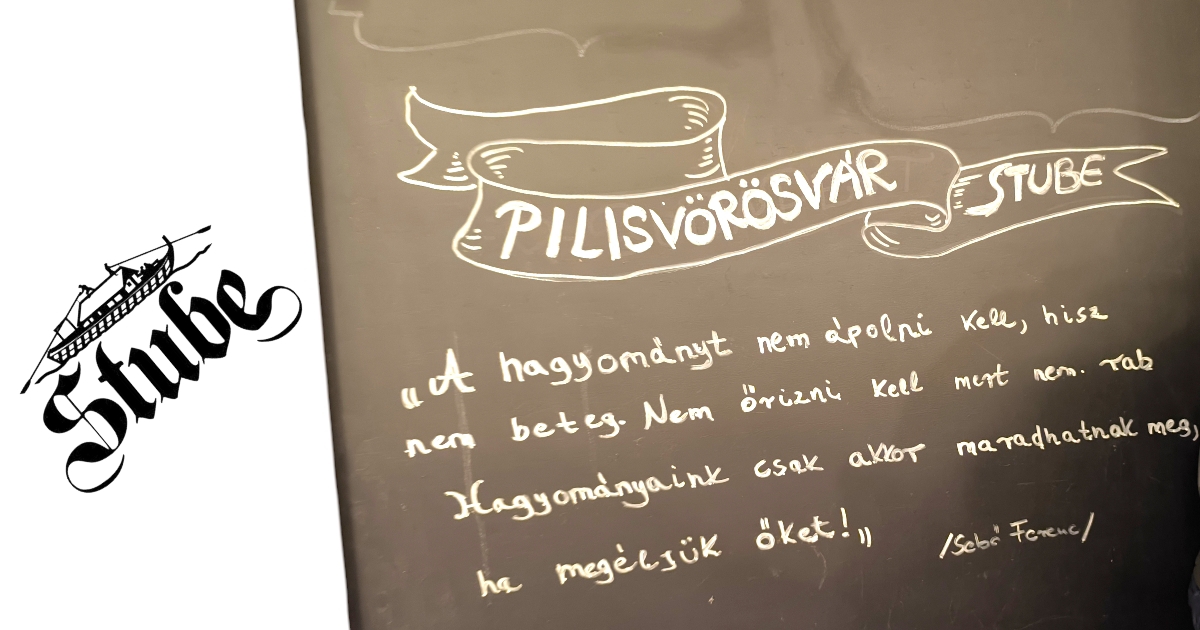 Stube
PILISVÖRÖSVÁR STUBE
„A hagyományt nem ápolni kell, hisz
nem beteg. Nem őrizni kell mert nem. rab
Hagyományaink csak akkor maradhatnak meg,
ha megéljük őket!„
/Sebő Ferenc/